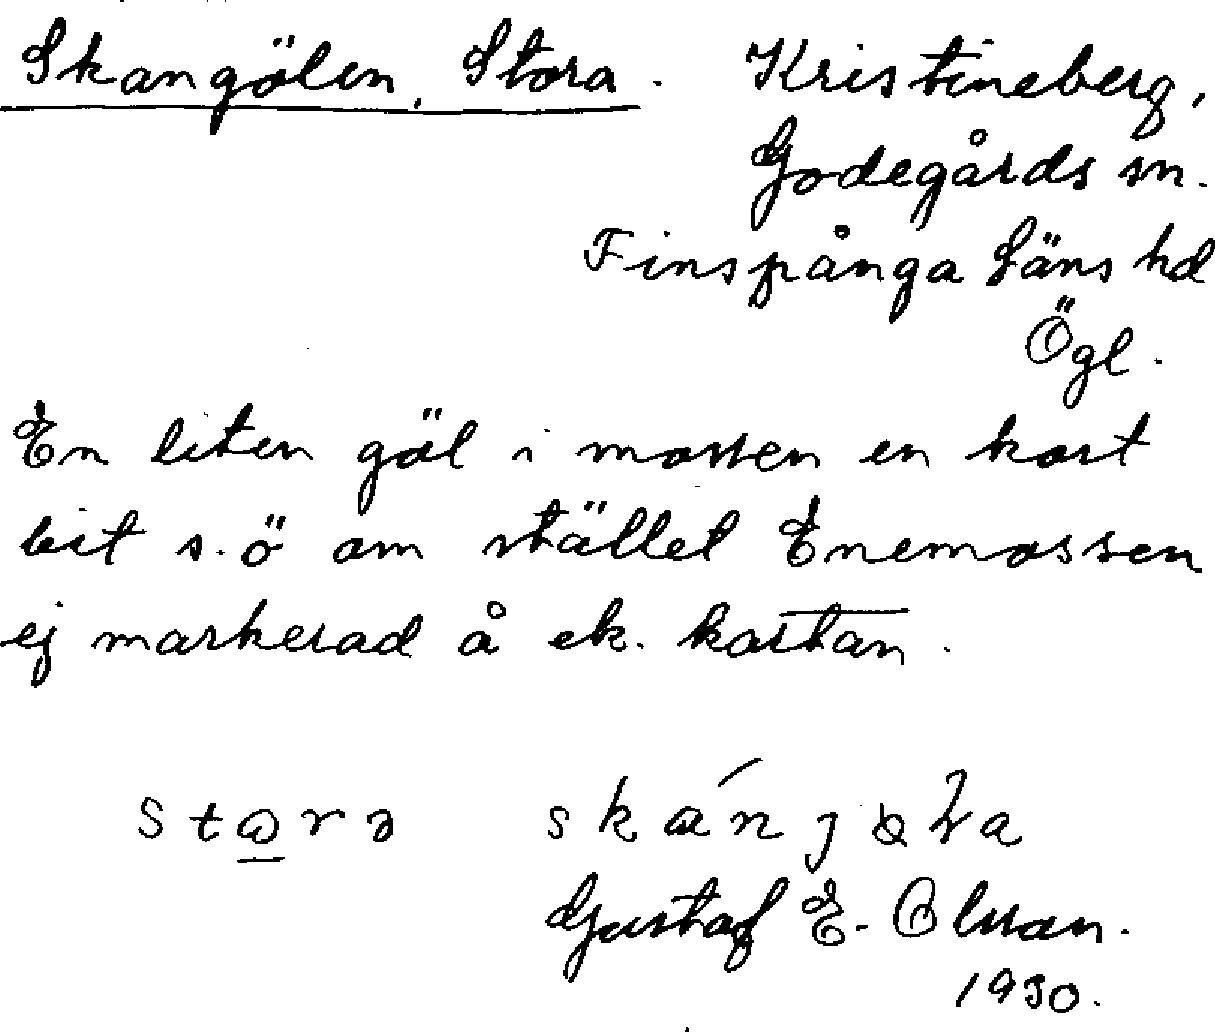 Skangölen, Stora. Kristineberg,
Godegårds sn.
Finspånga Läns hd
Ögl.
En liten göl i mossen en kort
bit s.ö om stället Enemossen
ej markerad å ek. kartan.
Gustaf E. Olsson.
1930.